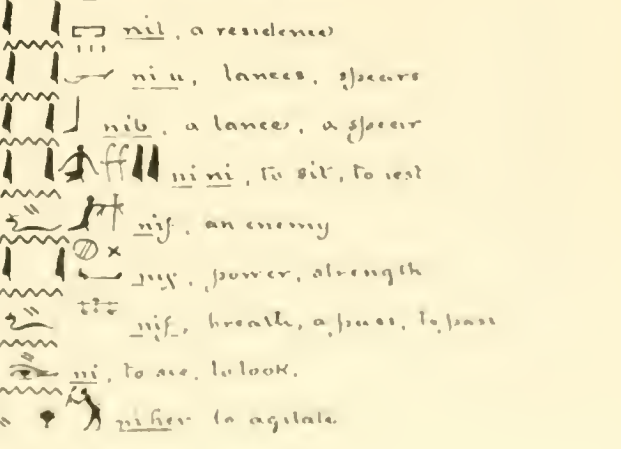 nit, a residence
ni u, lances, spears
nib, a lance, a spear
ni ni, to sit, to rest
nif, an enemy
power, strength
nif, breath, to pass
ni, to see, to look.
ni her to agitate